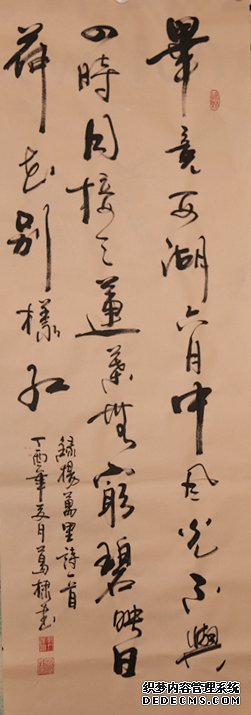 畢竟西湖六月中風光不與
四時同接天蓮葉無窮碧映日
荷花別樣紅
錄楊萬里詩一首
丁酉年夏月葛棣書
织梦内容管理系统
DEDECMS.COM